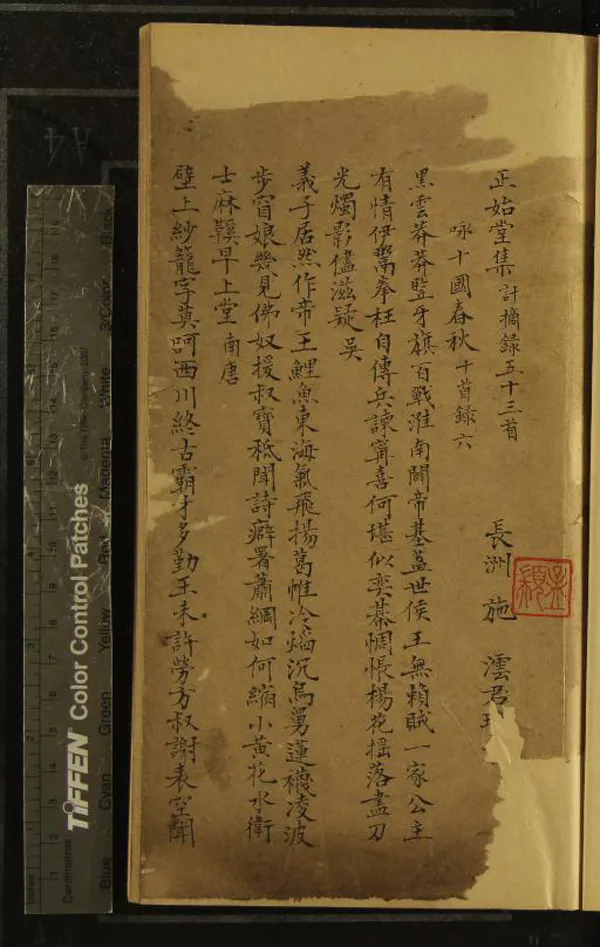 正始堂集 計摘錄五十三首
長洲 施 澐君
咏十國春秋 十首錄六
黑雲莽莽豎牙旗百戰淮南開帝基蓋世侯王無賴賊一家公主
有情伊鬻拳枉自傳兵諫甯喜何堪似奕棊惆悵楊花搖落盡刀
光燭影儘滋疑 吳
義子居然作帝王鯉魚東海氣飛揚葛帷冷燄沉烏舅蓮襪凌波
步窅娘幾見佛奴援叔寶秪聞詩癖署蕭綱如何縮小黃花水衛
士麻鞵早上堂 南唐
壁上紗籠字莫呵西川終古霸才多勤王未許勞方叔謝表空聞
A4
TIFFEN Color Control Patches
© The Tiffen Company, 2007
Centimetres
Inches
Blue
Cyan
Green
Yellow
Red
Magenta
White
3/Color
Black